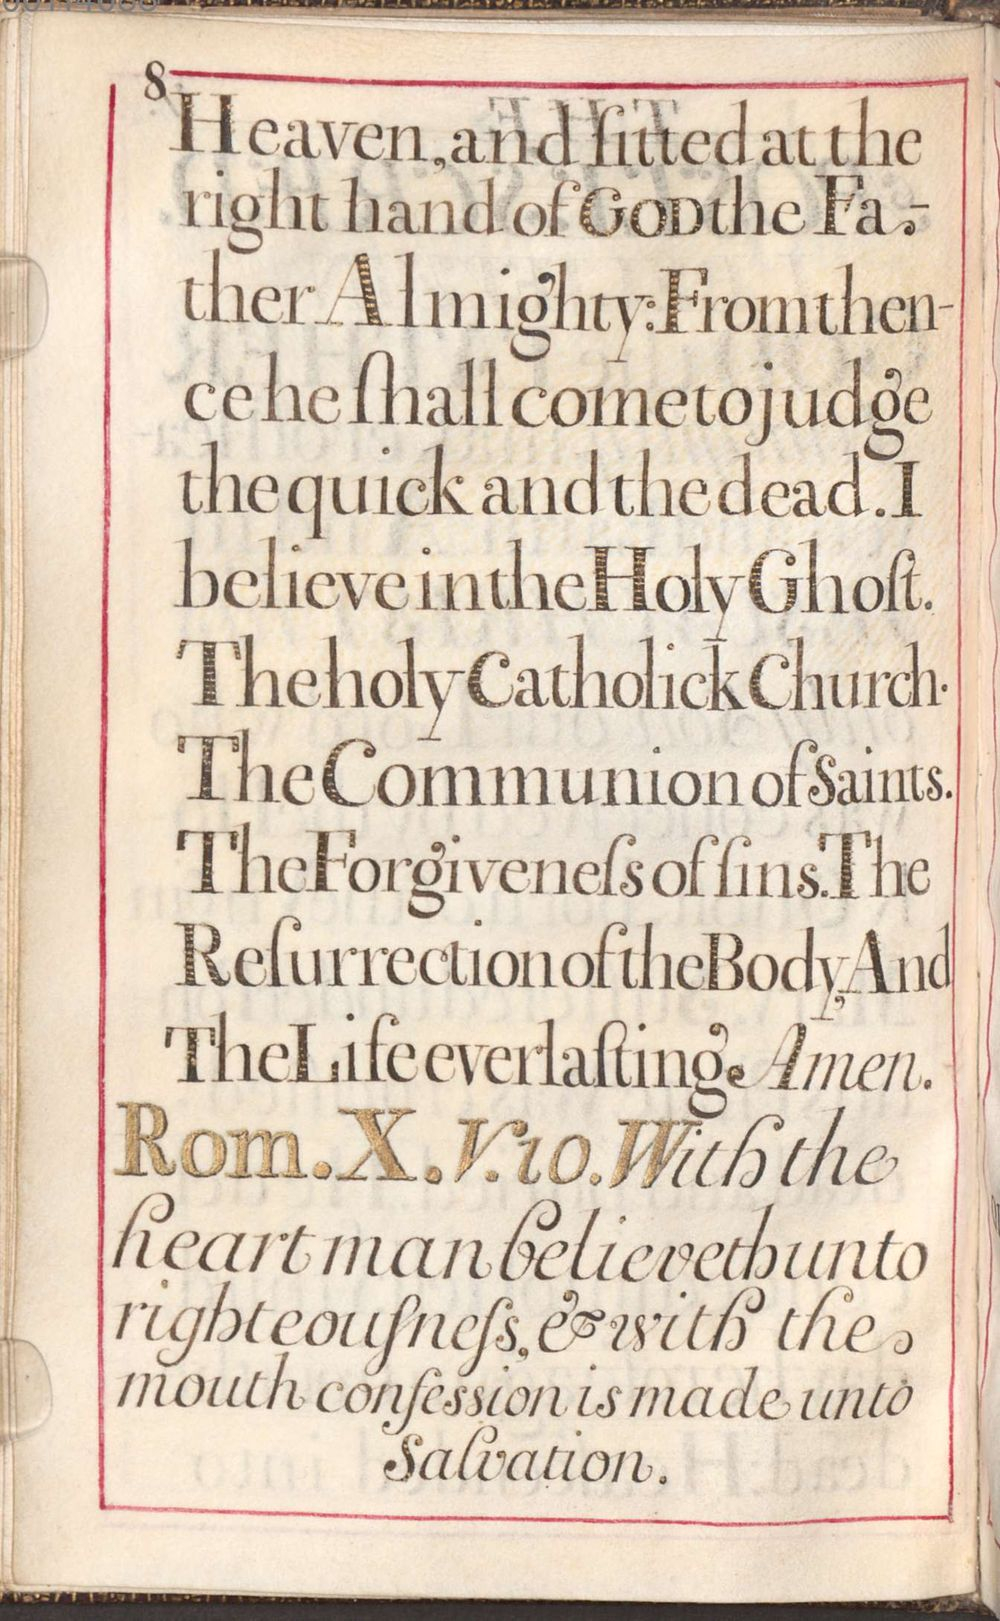 8
Heaven, and ſitted at the
right hand of GOD the Fa-
ther Almighty: From then-
ce he ſhall come to judge
the quick and the dead. I
believe in the Holy Ghoſt.
The holy Catholick Church.
The Communion of Saints.
The Forgiveneſs of ſins. The
Reſurrection of the Body, And
The Life everlaſting. Amen.
Rom. X. V. 10. With the
heart man believeth unto
righteouſneſs, & with the
mouth confession is made unto
Salvation.